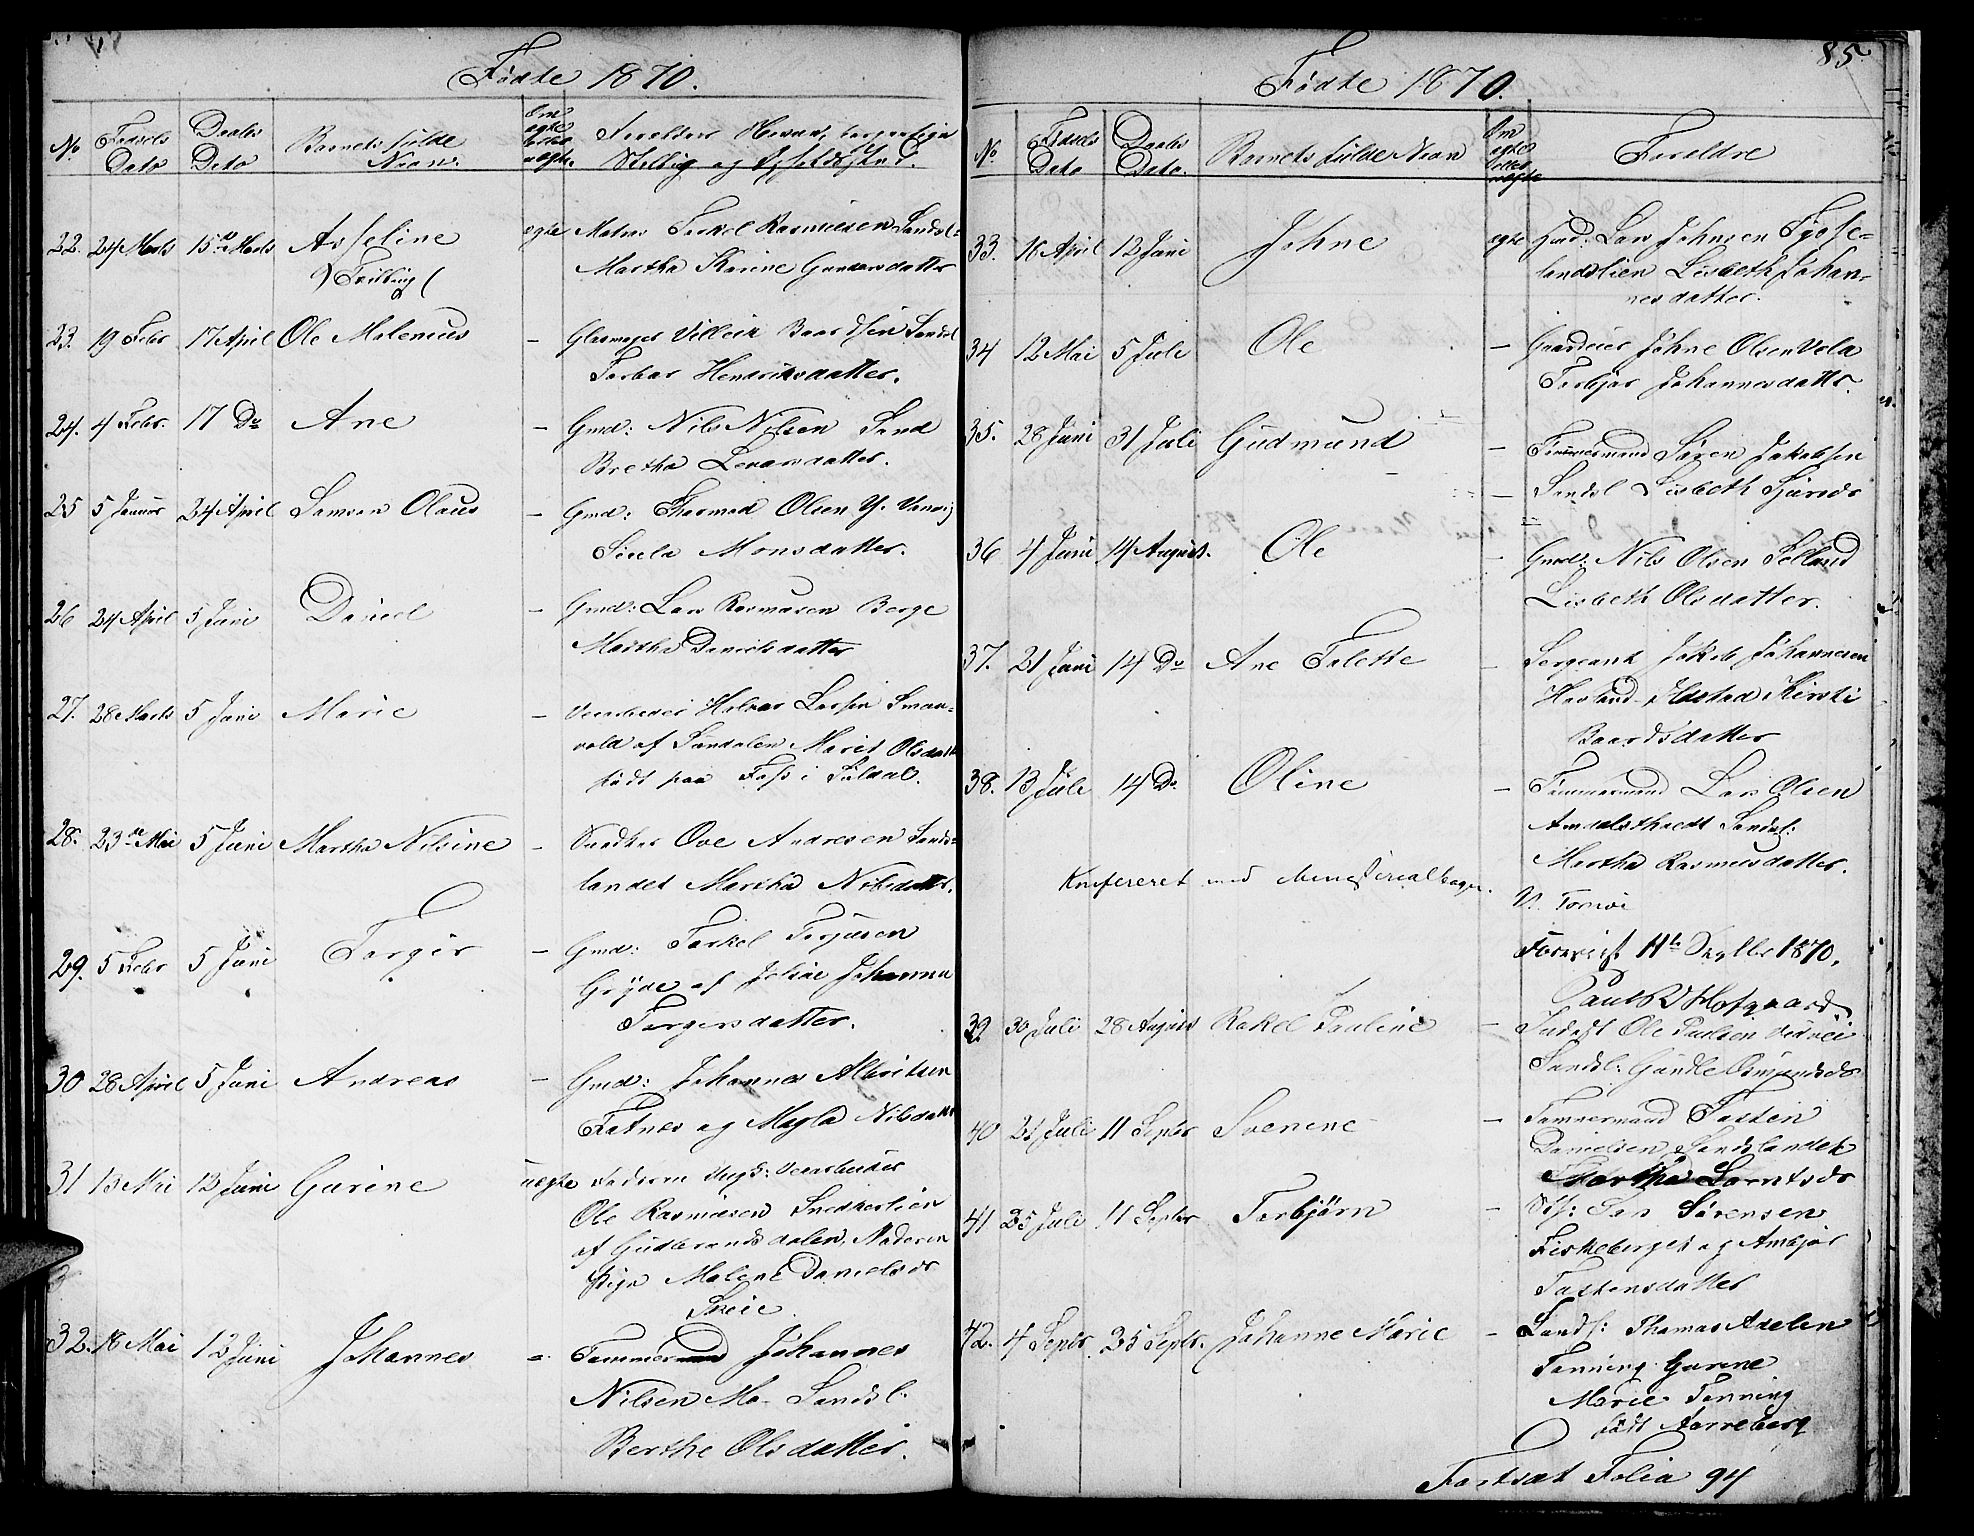 Fødte 1870.
No Fødsels Dato Daabs Dato Barnets fulde Navn. Om ægte eller uægte. Forældres Navne, borgerlige
Stilling og Opholdsted.
22. 24 Marts 15de Marts Asseline ægte Matros Torkel Rasmussen Sandsl=
Martha Karine Gundersdatter
23. 19 Febr 17 April Ole Malenius — Glasmager Villein Baardsen Sandsl
Torbør Hendriksdatter.
24. 4 Febr. 17 Do Ane — Gmd: Nils Nilsen Sand
Bretha Larsdatter.
25 5 Januar 24 April Samson Olaus — Gmd: Thormod Olsen Y. Vanvig
Siela Monsdatter.
26 24 April 5 Juni Daniel — Gmd: Lars Rasmusen Berge
Martha Danielsdatter
27. 28 Marts 5 Juni Marie — Veiarbeider Halvor Larsen Smør-
vold af Sundalen Marit Olsdatter
født paa Foss i Suldal.
28. 23de Mai 5 Juni Martha Nilsine — Snedker Ove Andresen Sands=
landet Martha Nilsdatter.
29. 5 Febr 5 Juni Torger — Gmd: Torkel Terjusen
Gryde af Jelsa Johanna
Torgersdatter.
30 28 April 5 Juni Andreas — Gmd: Johannes Albritsen
Fatnes og Magla Nilsdatter
31 13 Mai 12 Juni Gurine uægte Faderen Ungk: Veiarbeider
Ole Rasmusen Snedkerlien
af Gudbrandsdalen, Moderen
Pige Malene Danielsdr
Skeie.
32. 18 Mai 12 Juni Johannes Tømmermand Johannes
Nilsen Mo- Sandsl.
Berthe Olsdatter.
85
Fødte 1870.
No Fødsels Dato Daabs Dato. Barnets fulde Navn Om ægte eller uægte Forældre
33. 16 April 12 Juni Johne ægte Husd: Lars Johnsen Fjose-
landslien Lisbeth Johan-
nesdatter.
34 12 Mai 5 Juli Ole — Gaardeier Johne Olsen Vela
Torbjør Johannesdattr.
35. 28 Juni 31 Juli Gudmund — Tømmermand Søren Jakobsen
— Sandsl Lisbeth Sjursdr
36 4 Juni 14 August. Ole — Gmd: Nils Olsen Selland
Lisbeth Olsdatter.
37. 21 Juni 14 Do Ane Tolette — Sergeant Jakob Johannesen
Havland Kirsti
Baardsdatter
38. 13 Juli 14 Do Oline — Tømmermand Lars Olsen
Sandsl:
Martha Rasmusdatter.
Konfereret med Ministerialbogen.
V. Forevist 11te Septbr 1870,
Paul B Hofgaard
39. 30 Juli 28 August Rakel Pauline — Inderst Ole Paulsen Vedvei
Sandsl: Gunille Osmundsdr
40 21 Juli 11 Septbr Svenine — Tømmermand Tosten
Danielsen Sandslandet
Martha Berntsdr
41 25 Juli 11 Septbr Torbjørn — Str: Jon Sørensen
Fiskeberget og Ambjør
Tostensdatter
42. 4 Septbr 25 Septbr. Johanne Marie — Landh: Thomas Adelin
Tenning Gurine
Marie Tenning
født Nørreberg
Fortsat Folia 94